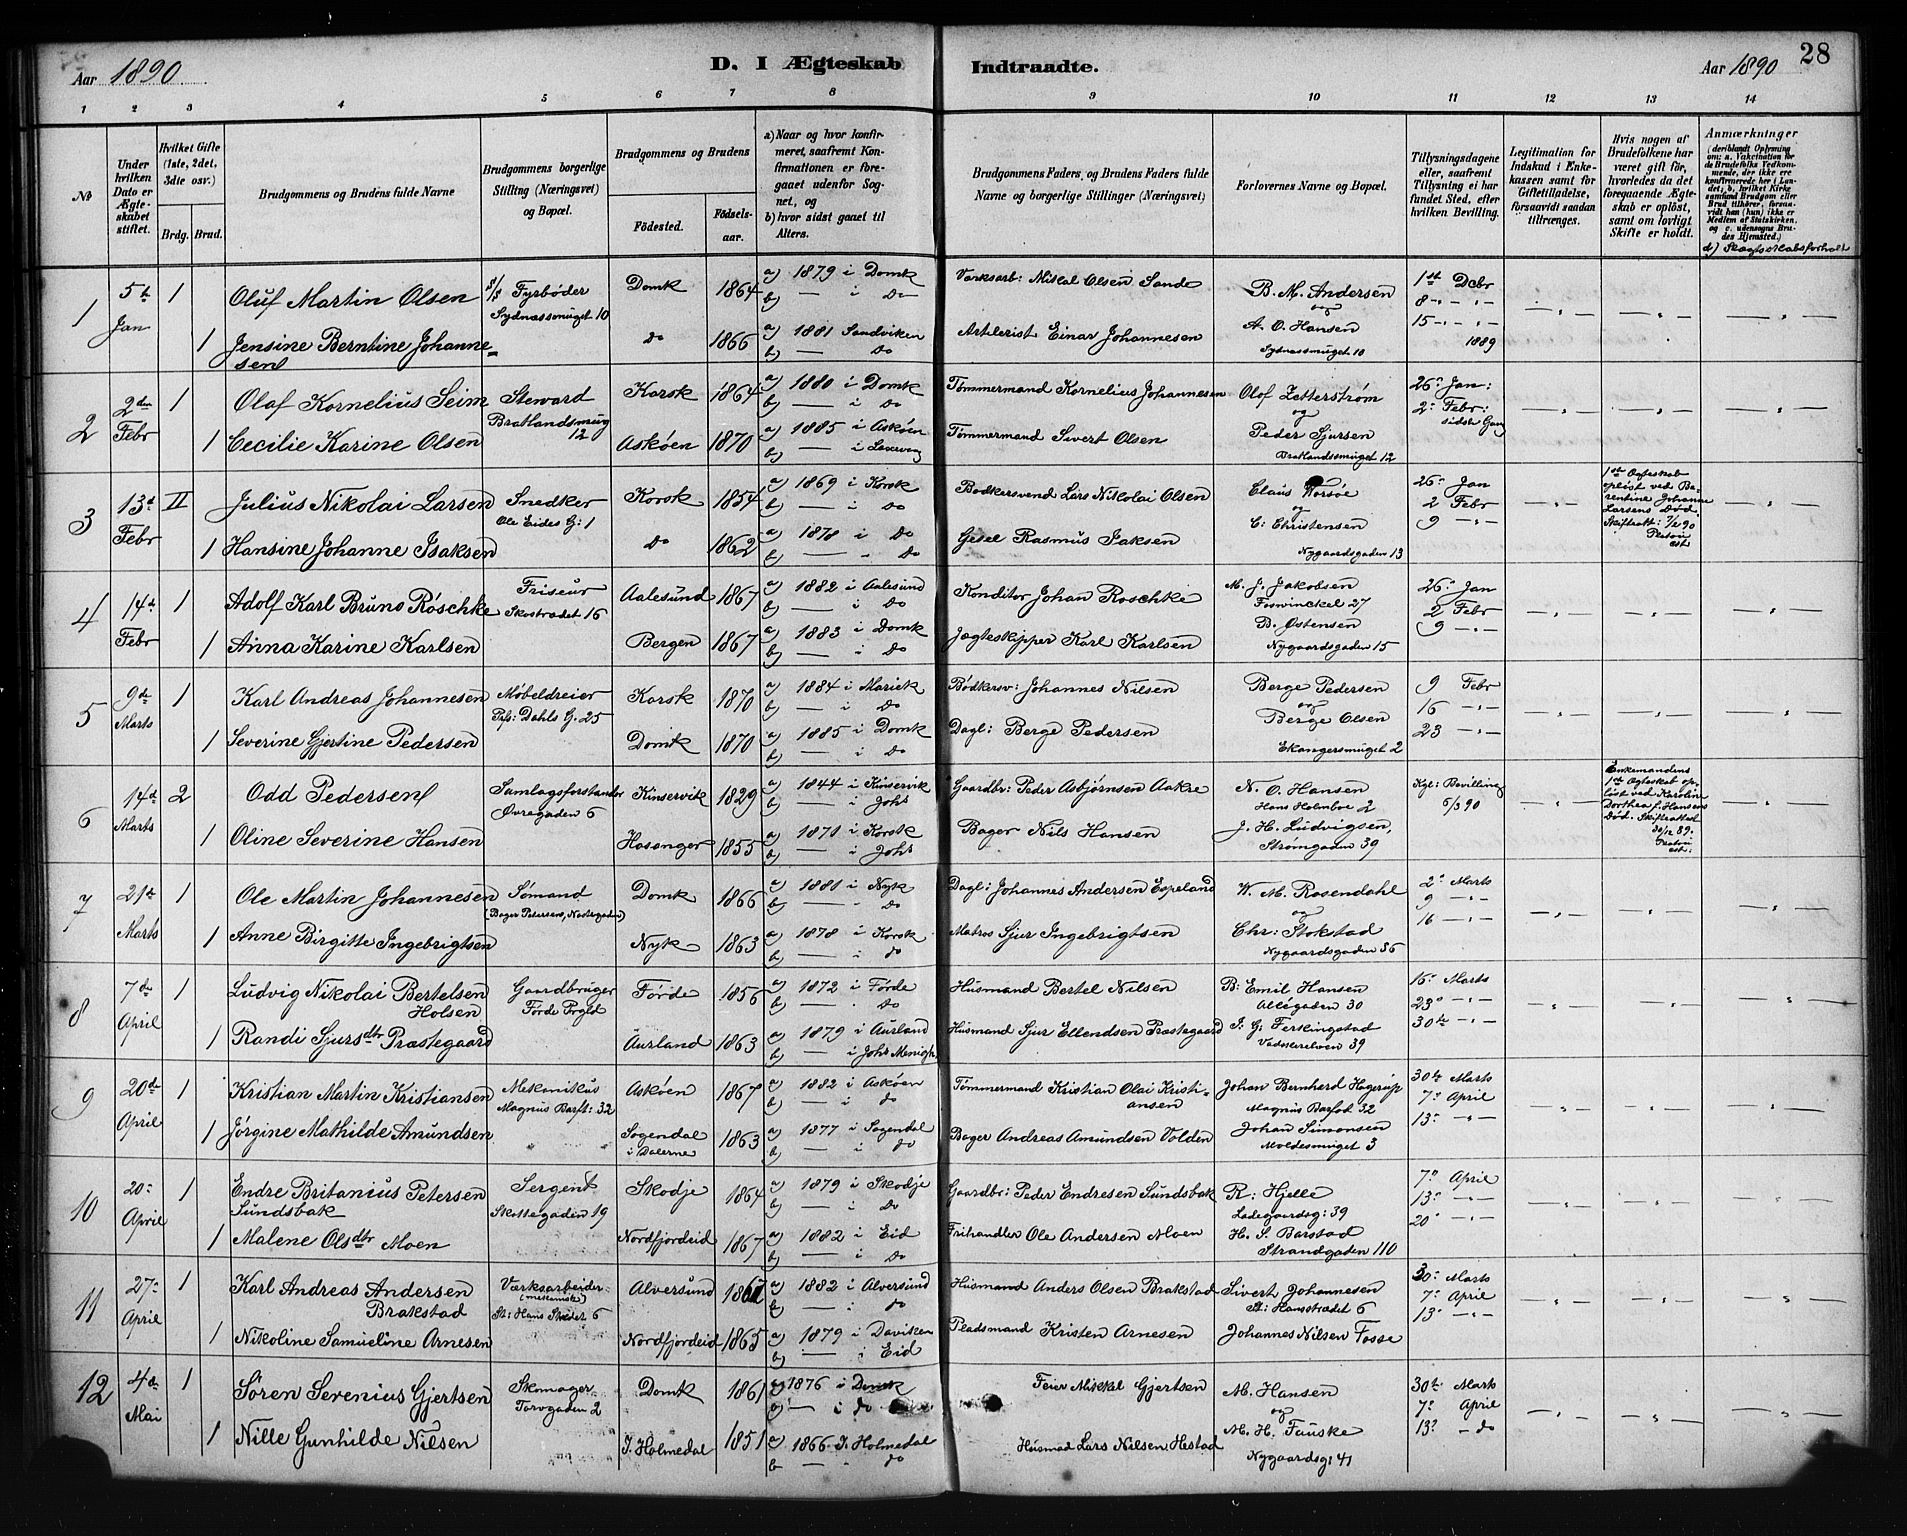 Aar 1890
D. I Ægteskab Indtraadte.
Aar 1890
28
1 2 3 4 5 6 7 8 9 10 11 12 13 14
No
Under hvilken Dato er Ægteskabet stiftet.
Hvilket Gifte (1ste, 2det, 3die osv.)
Brdg. Brud.
Brudgommens og Brudens fulde Navne
Brudgommens borgerlige Stilling (Næringsvei) og Bopæl.
Brudgommens og Brudens
Fødested.
Fødselsaar.
a) Naar og hvor konfirmeret, saafremt Konfirmationen er foregaaet udenfor Sognet, og
b) hvor sidst gaaet til Alters.
Brudgommens Faders, og Brudens Faders fulde Navne og borgerlige Stillinger (Næringsvei)
Forlovernes Navne og Bopæl.
Tillysningsdagene eller, saafremt Tillysning ei har fundet Sted, efter hvilken Bevilling.
Legitimation for Indskud i Enkekassen samt for Giftetilladelse, forsaavidt saadan tiltrænges.
Hvis nogen af Brudefolkene har været gift før, hvorledes da det foregaaende Ægteskab er opløst, samt om lovligt Skifte er holdt.
Anmærkninger
(deriblandt Oplysning om: a. Vakcination for de Brudefolks Vedkommende, der ikke ere konfirmerede her i Landet; b. hvilket Kirkesamfund Brudgom eller Brud tilhører, forsaavidt han (hun) ikke er Medlem af Statskirken, og c. udensogns Brudes Hjemsted.)
d) Slægtskabsforhold
1 5te Jan 1 Oluf Martin Olsen s/s Fyrbøder Domk 1864 a) 1879 i Domk Værksarb: Mikal Olsen Sande B. M. Andersen 1ste Dcbr
Sydnæssmuget 10 b) — i do og 8 -"- -"-
1 Jensine Berntine Johannesen do 1866 a) 1881 Sandviken Artlerist Einar Johannesen A. O. Hansen 15 -"- -"-
b) — do Sydnæssmuget 10 1889
2 2den Febr 1 Olaf Kornelius Seim Steward Korsk 1864 a) 1880 i Domk Tømmermand Kornelius Johannesen Olof Zetterstrøm 26. Jan:
Bratlandsmug 12 b) — i do og 2. Febr: sidste Gang
1 Cecilie Karine Olsen Askøen 1870 a) 1885 i Askøen Tømmermand Sivert Olsen Peder Sjursen
b) — i Bratlandssmuget 12
3 13d Febr II Julius Nikolai Larsen Snedker Korsk 1854 a) 1869 i Korsk Bødkersvend Lars Nikolai Olsen Claus Korsøe 26. Jan 1ste Ægteskab opløst ved Berentine Johanne Larsens Død.
Ole Eides G: 1 b) — i do og 2 Febr Skifteatt: 7/2 90
1 Hansine Johanne Isaksen do 1862 a) 1878 i do Gesel Rasmus Isaksen C: Christensen 9 -"-
b) — " do Nygaardsgaden 13
4 14d Febr 1 Adolf Karl Bruno Röschke Friseur Aalesund 1867 a) 1882 i Aalesund Konditor Johan Roschke M. J. Jakobsen 26. Jan
Skostrædet 16 b) — i do Foswinckel 27 2 Febr
1 Anna Karine Karlsen Bergen 1867 a) 1883 i Domk Jægteskipper Karl Karlsen B. Østensen 9 -"-
b) — i do Nygaardsgaden 15
5 9de Marts 1 Karl Andreas Johannesen Møbeldreier Korsk 1870 a) 1884 i Mariek Bødkersv: Johannes Nilsen Berge Pedersen 9 Febr
Prfs: Dahls G. 25 b) — i do og 16 -"-
1 Severine Gjertine Pedersen Domk 1870 a) 1885 i Domk Dagl: Berge Pedersen Berge Olsen 23 -"-
b) — i do Ekangersmuget 2
6 14d Marts 2 Odd Pedersen Samlagsforstander Kinservik 1829 a) 1844 i Kinservik Gaardbr: Peder Asbjørnsen Aakre N. O. Hansen Kgl: Bevilling Enkemandens 1ste Ægteskab opløst ved Karoline Dorthea f. Hansens Død. Skifteattest 30/12 89.
Øvregaden 6 b) — i Johs Hans Holmboe 2 5/3 90
1 Oline Severine Hansen Hosanger 1855 a) 1871 i Korsk Bager Nils Hansen J. H. Ludvigsen,
b) — i Johs Strømgaden 39
7 21de Marts 1 Ole Martin Johannesen Sømand Domk 1866 a) 1881 i Nyk Dagl: Johannes Andersen Espeland W. M. Rosendahl 2. Marts
(Bager Petersens, Nostregaden) b) — " do og 9 -"-
1 Anne Birgitte Ingebrigtsen Nyk 1863 a) 1878 i Korsk Matros Sjur Ingebrigtsen Chr: Stokstad 16 -"-
b) — " do Nygaardsgaden 86
8 7de April 1 Ludvig Nikolai Bertelsen Holsen Gaardbruger Førde 1856 a) 1872 i Førde Husmand Bertel Nilsen B: Emil Hansen 16. Marts
Førde Prgld b) — " do Allégaden 30 23. -"-
1 Randi Sjursdtr Præstegaard Aurland 1863 a) 1879 i Aurland Husmand Sjur Ellendsen Præstegaard S. G. Ferkingstad 30te -"-
b) — i Johs Menigh. Vaskerelven 39
9 20de April 1 Kristian Martin Kristiansen Mekanikus Askøen 1867 a) 1882 i Askøen Tømmermand Kristian Olai Kristiansen Johan Bernhard Hagerup 30te Marts
Magnus Barft: 32 b) — i do Magnus Barfod 32 7. April
1 Jørgine Mathilde Amundsen Sogendal i Dalerne 1863 a) 1877 i Sogendal Bager Andreas Amundsen Volden Johan Simonsen 13. -"-
b) — i do Moldesmuget 3
10 20. April 1 Endre Britanius Petersen Sundsbak Sergent Skodje 1864 a) 1879 i Skodje Gaardbr: Peder Endresen Sundsbak R: Hjelle 7. April
Skottegaden 19 b) — i do Ladegaardsg: 39 13. -"-
1 Malene Olsdtr Moen Nordfjordeid 1867 a) 1882 i Eid Frihandler Ole Andersen Moen H. S. Barstad 20 -"-
b) — i do Strandgaden 110
11 27. April 1 Karl Andreas Andersen Brakstad Værksarbeider (mekanisk) Alversund a) 1882 i Alversund Husmand Anders Olsen Brakstad Sivert Johannesen 30. Marts
St: Hans Stræder 6 b) — i do St: Hansstrædet 6 7. April
1 Nikoline Samueline Arnesen Nordfjordeid 1865 a) 1879 i Daviken Pladsmand Kristen Arnesen Johannes Nilsen Fosse 13. -"-
b) — i Eid
12 4de Mai 1 Søren Severius Gjertsen Skomager Domk 1861 a) 1876 i Domk Feier Mikkal Gjertsen M. Hansen 30te Marts
Torvgaden 2 b) — i do og 7. April
1 Nille Gunhilde Nilsen I. Holmedal 1851 a 1866 I. Holmedal Husmad Lars Nilsen Hestad M. H. Fauske 13. - do
b — " do Nygaardsg: 41